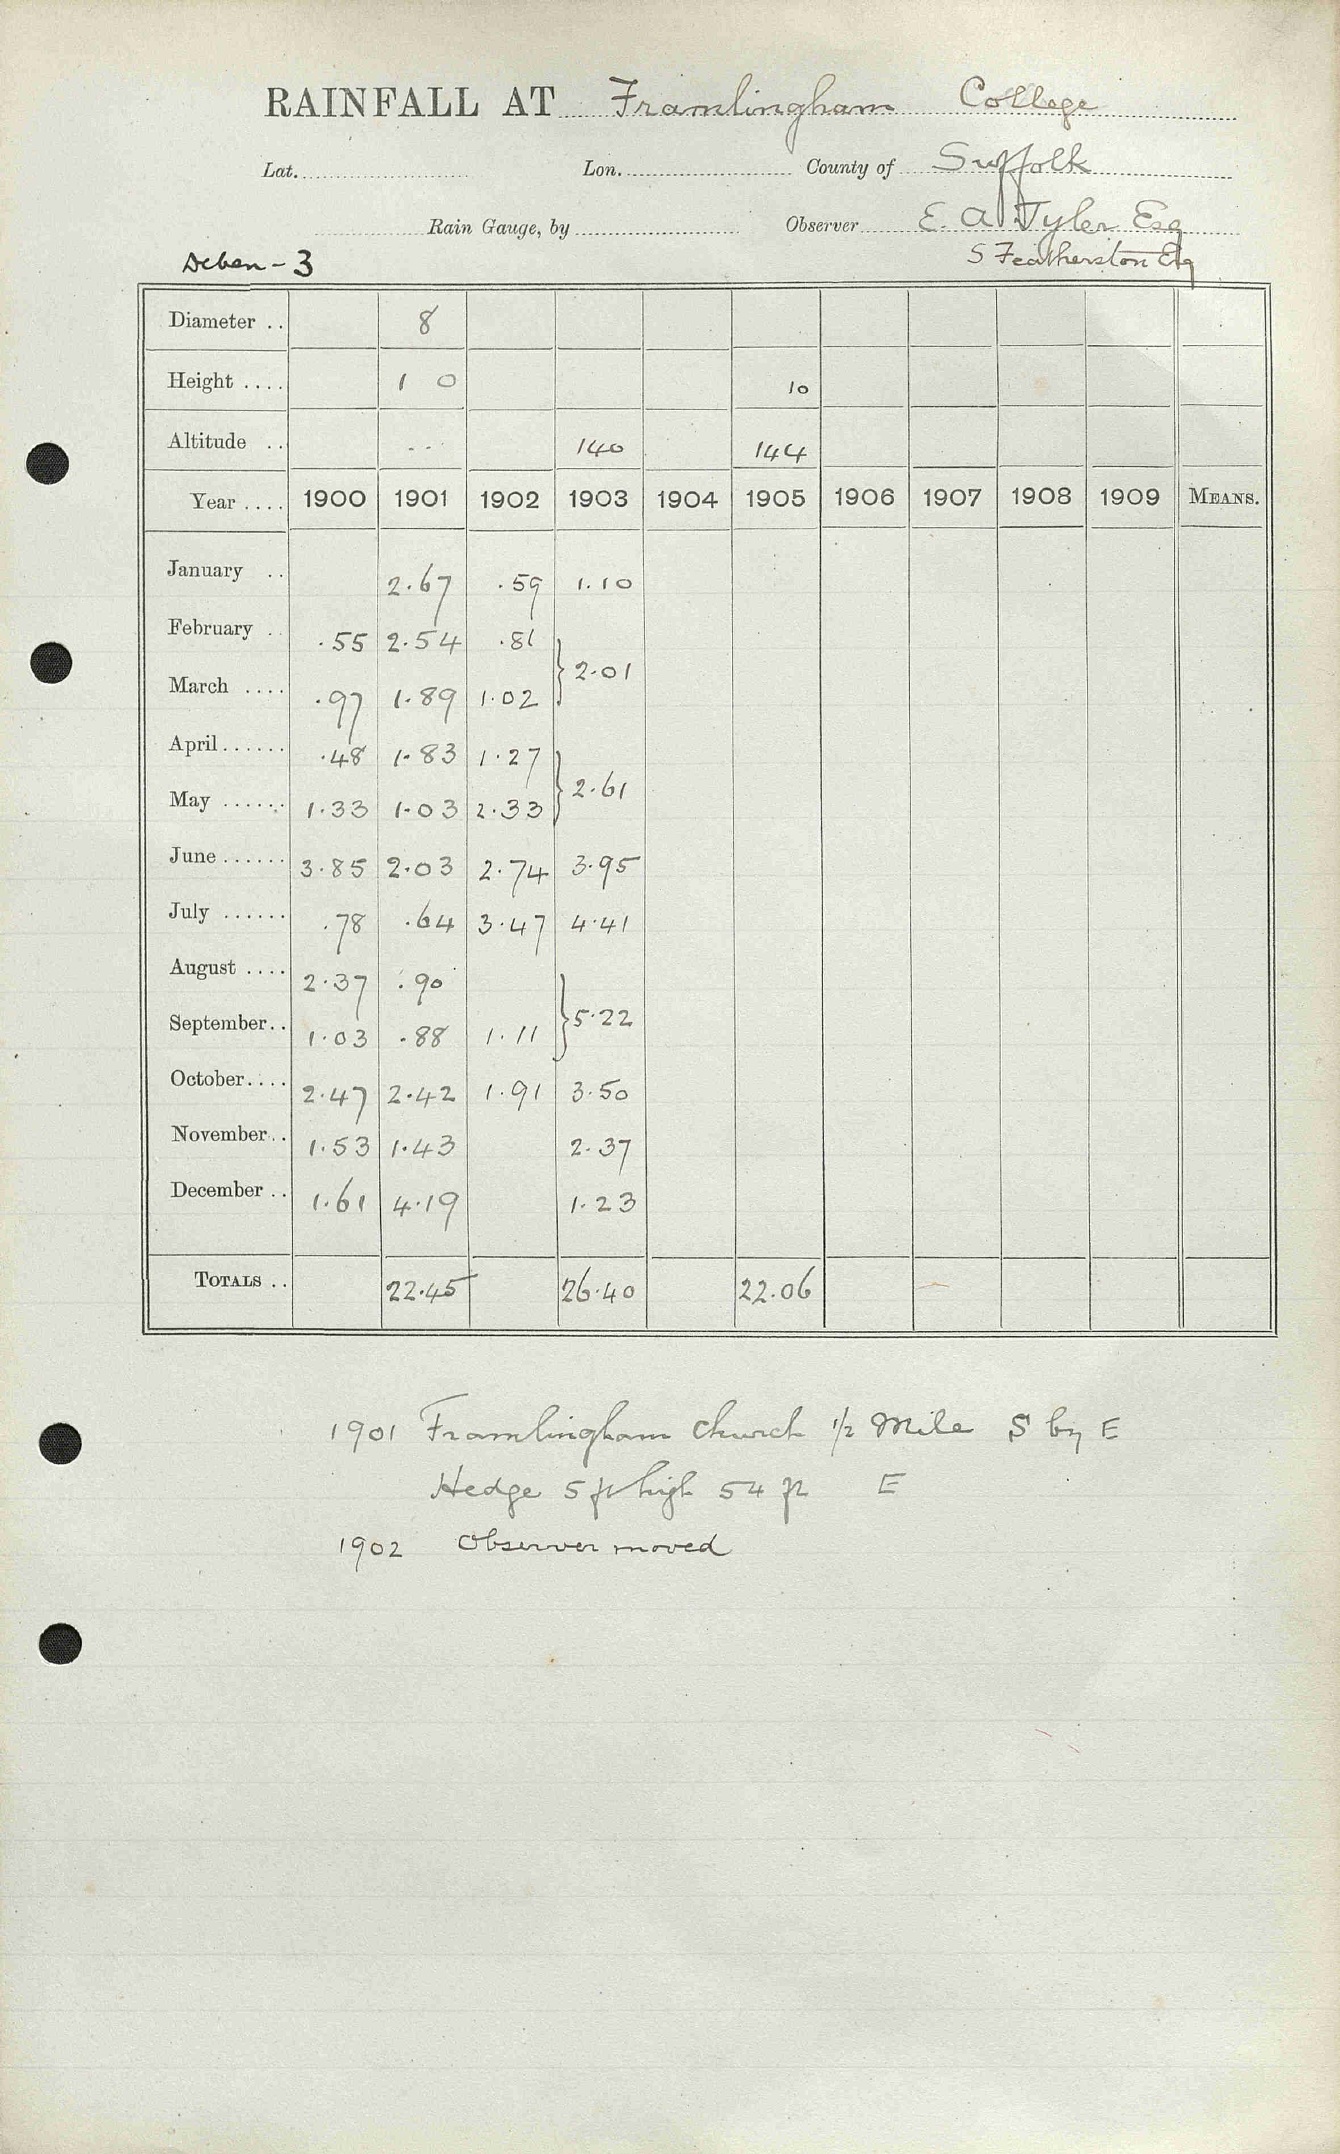 RAINFALL AT Framlingham College
Lat. Lon. County of Suffolk
Rain Gauge, by Observer E. A Tyler Esq
Deben - 3 S Featherston Esq
Diameter .. 8
Height .... 1 0 10
Altitude .. .. 140 144
Year .... 1900 1901 1902 1903 1904 1905 1906 1907 1908 1909 MEANS.
January .. 2.67 .59 1.10
February .. .55 2.54 .81
} 2.01
March .... .97 1.89 1.02
April...... .48 1.83 1.27
} 2.61
May ...... 1.33 1.03 2.33
June...... 3.85 2.03 2.74 3.95
July ...... .78 .64 3.47 4.41
August .... 2.37 .90
} 5.22
September.. 1.03 .88 1.11
October.... 2.47 2.42 1.91 3.50
November.. 1.53 1.43 2.37
December .. 1.61 4.19 1.23
TOTALS .. 22.45 26.40 22.06
1901 Framlingham Church 1/2 Mile S by E
Hedge 5 ft high 54 ft E
1902 Observer moved